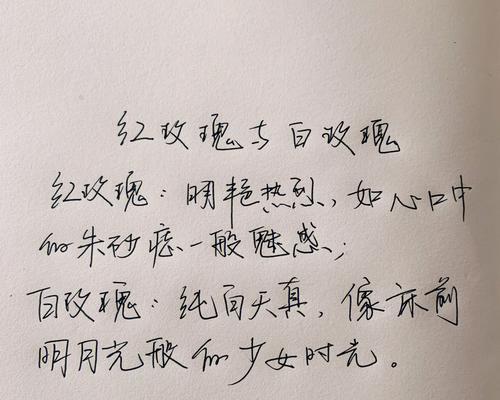 红玫瑰与白玫瑰
红玫瑰：明艳热烈，如心口中
的朱砂痣一般魅惑；
白玫瑰：纯白天真，像床前
明月光般的少女时光。